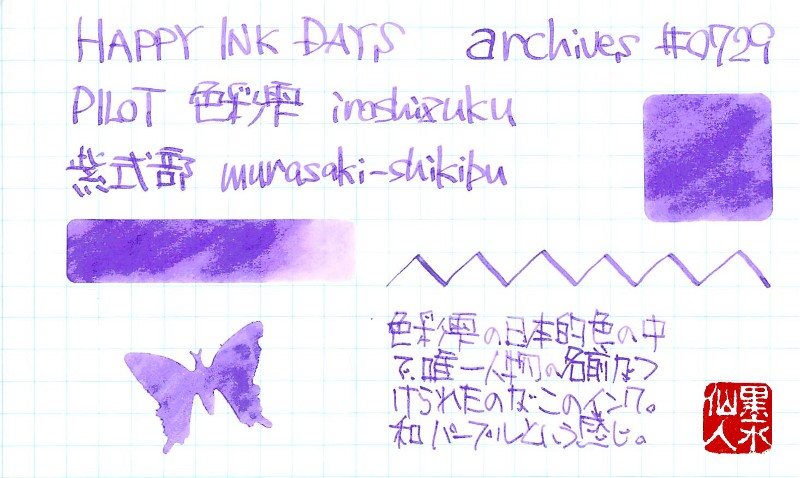 HAPPY INK DAYS archives #0729
PILOT 色彩雫 iroshizuku
紫式部 murasaki-shikibu
色彩雫の日本的色の中
で、唯一人物の名前がつ
けられたのがこのインク。
和パープルという感じ。
墨水
仙人